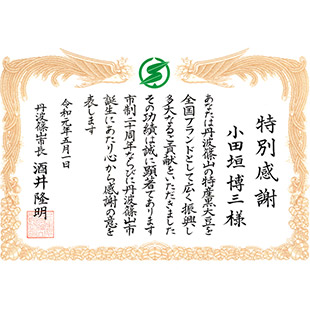 特別感謝
小田垣博三様
あなたは丹波篠山の特産黒大豆を
全国ブランドとして広く振興し
多大なるご貢献をいただきました
その功績は誠に顕著であります
市制二十周年ならびに丹波篠山市
誕生にあたり心から感謝の意を
表します
令和元年五月一日
丹波篠山市長 酒井隆明